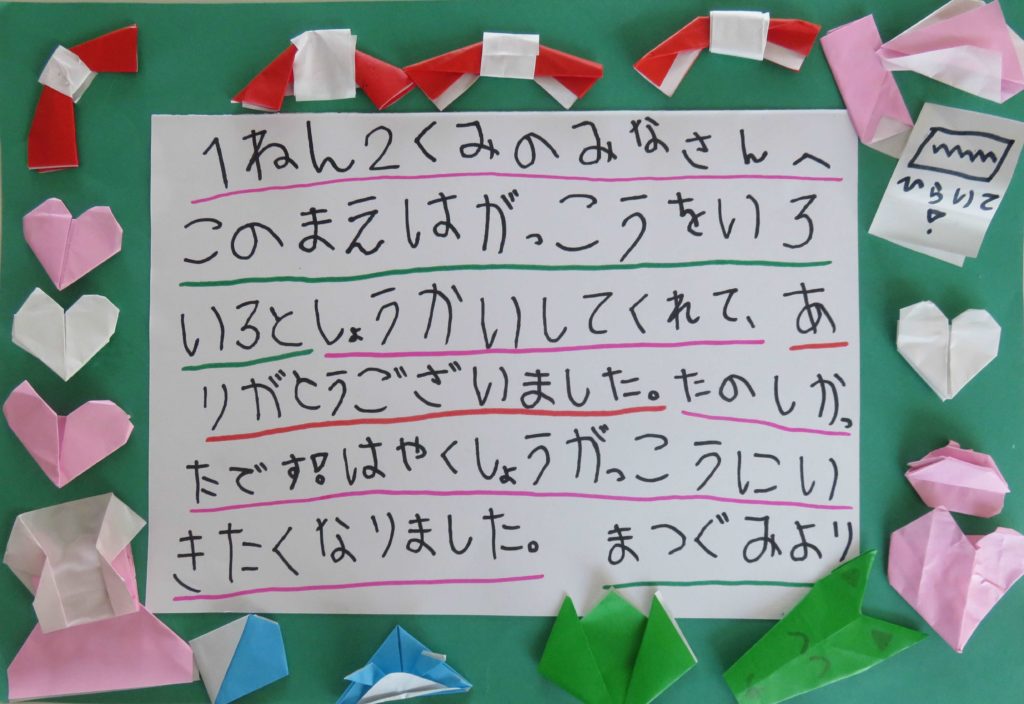 1ねん2くみのみなさんへ
このまえはがっこうをいろ
いろとしょうかいしてくれて、あ
りがとうございました。たのしかっ
たです!はやくしょうがっこうにい
きたくなりました。 まつぐみより
ひらいて!